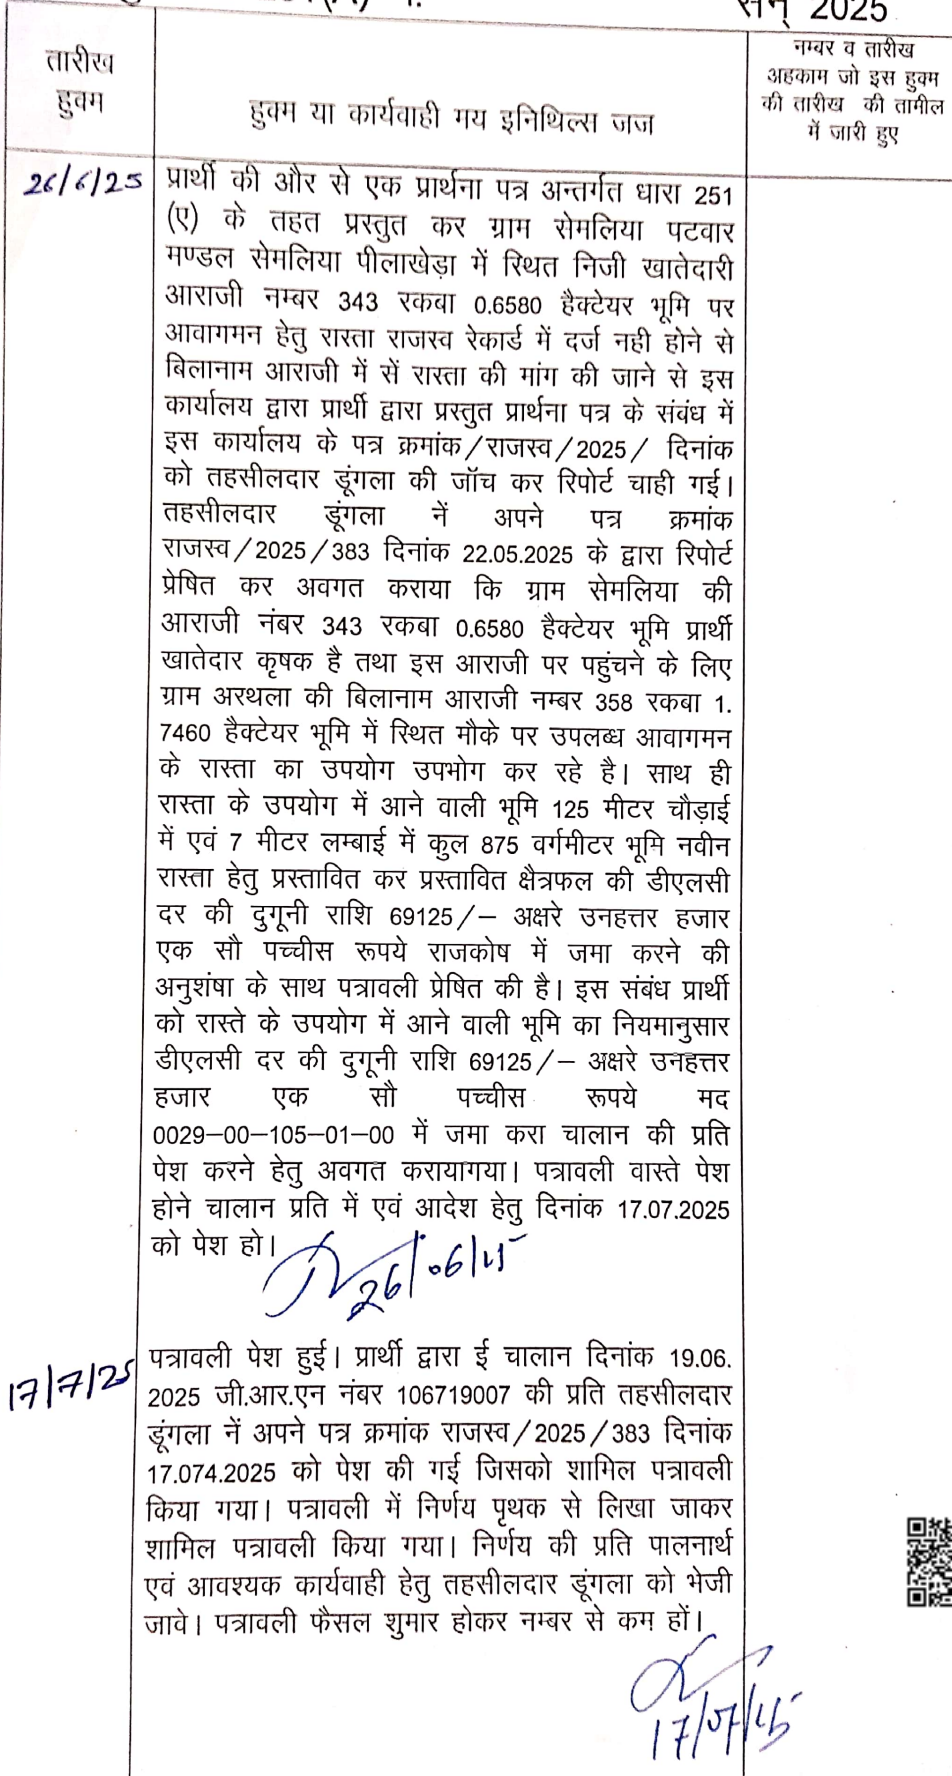 सन् 2025
तारीख
हुक्म
हुक्म या कार्यवाही मय इनिथिल्स जज
नम्बर व तारीख
अहकाम जो इस हुक्म
की तारीख की तामील
में जारी हुए
26/6/25
प्रार्थी की और से एक प्रार्थना पत्र अन्तर्गत धारा 251
(ए) के तहत प्रस्तुत कर ग्राम सेमलिया पटवार
मण्डल सेमलिया पीलाखेड़ा में स्थित निजी खातेदारी
आराजी नम्बर 343 रकबा 0.6580 हैक्टेयर भूमि पर
आवागमन हेतु रास्ता राजस्व रेकार्ड में दर्ज नही होने से
बिलानाम आराजी में सें रास्ता की मांग की जाने से इस
कार्यालय द्वारा प्रार्थी द्वारा प्रस्तुत प्रार्थना पत्र के संबंध में
इस कार्यालय के पत्र क्रमांक/राजस्व/2025/ दिनांक
को तहसीलदार डूंगला की जॉच कर रिपोर्ट चाही गई।
तहसीलदार डूंगला नें अपने पत्र क्रमांक
राजस्व/2025/383 दिनांक 22.05.2025 के द्वारा रिपोर्ट
प्रेषित कर अवगत कराया कि ग्राम सेमलिया की
आराजी नंबर 343 रकबा 0.6580 हैक्टेयर भूमि प्रार्थी
खातेदार कृषक है तथा इस आराजी पर पहुंचने के लिए
ग्राम अरथला की बिलानाम आराजी नम्बर 358 रकबा 1.
7460 हैक्टेयर भूमि में स्थित मौके पर उपलब्ध आवागमन
के रास्ता का उपयोग उपभोग कर रहे है। साथ ही
रास्ता के उपयोग में आने वाली भूमि 125 मीटर चौड़ाई
में एवं 7 मीटर लम्बाई में कुल 875 वर्गमीटर भूमि नवीन
रास्ता हेतु प्रस्तावित कर प्रस्तावित क्षैत्रफल की डीएलसी
दर की दुगूनी राशि 69125/– अक्षरे उनहत्तर हजार
एक सौ पच्चीस रूपये राजकोष में जमा करने की
अनुशंषा के साथ पत्रावली प्रेषित की है। इस संबंध प्रार्थी
को रास्ते के उपयोग में आने वाली भूमि का नियमानुसार
डीएलसी दर की दुगूनी राशि 69125/– अक्षरे उनहत्तर
हजार एक सौ पच्चीस रूपये मद
0029–00–105–01–00 में जमा करा चालान की प्रति
पेश करने हेतु अवगत करायागया। पत्रावली वास्ते पेश
होने चालान प्रति में एवं आदेश हेतु दिनांक 17.07.2025
को पेश हो।
26/06/25
17/7/25
पत्रावली पेश हुई। प्रार्थी द्वारा ई चालान दिनांक 19.06.
2025 जी.आर.एन नंबर 106719007 की प्रति तहसीलदार
डूंगला नें अपने पत्र क्रमांक राजस्व/2025/383 दिनांक
17.074.2025 को पेश की गई जिसको शामिल पत्रावली
किया गया। पत्रावली में निर्णय पृथक से लिखा जाकर
शामिल पत्रावली किया गया। निर्णय की प्रति पालनार्थ
एवं आवश्यक कार्यवाही हेतु तहसीलदार डूंगला को भेजी
जावे। पत्रावली फैसल शुमार होकर नम्बर से कम हों।
17/07/25